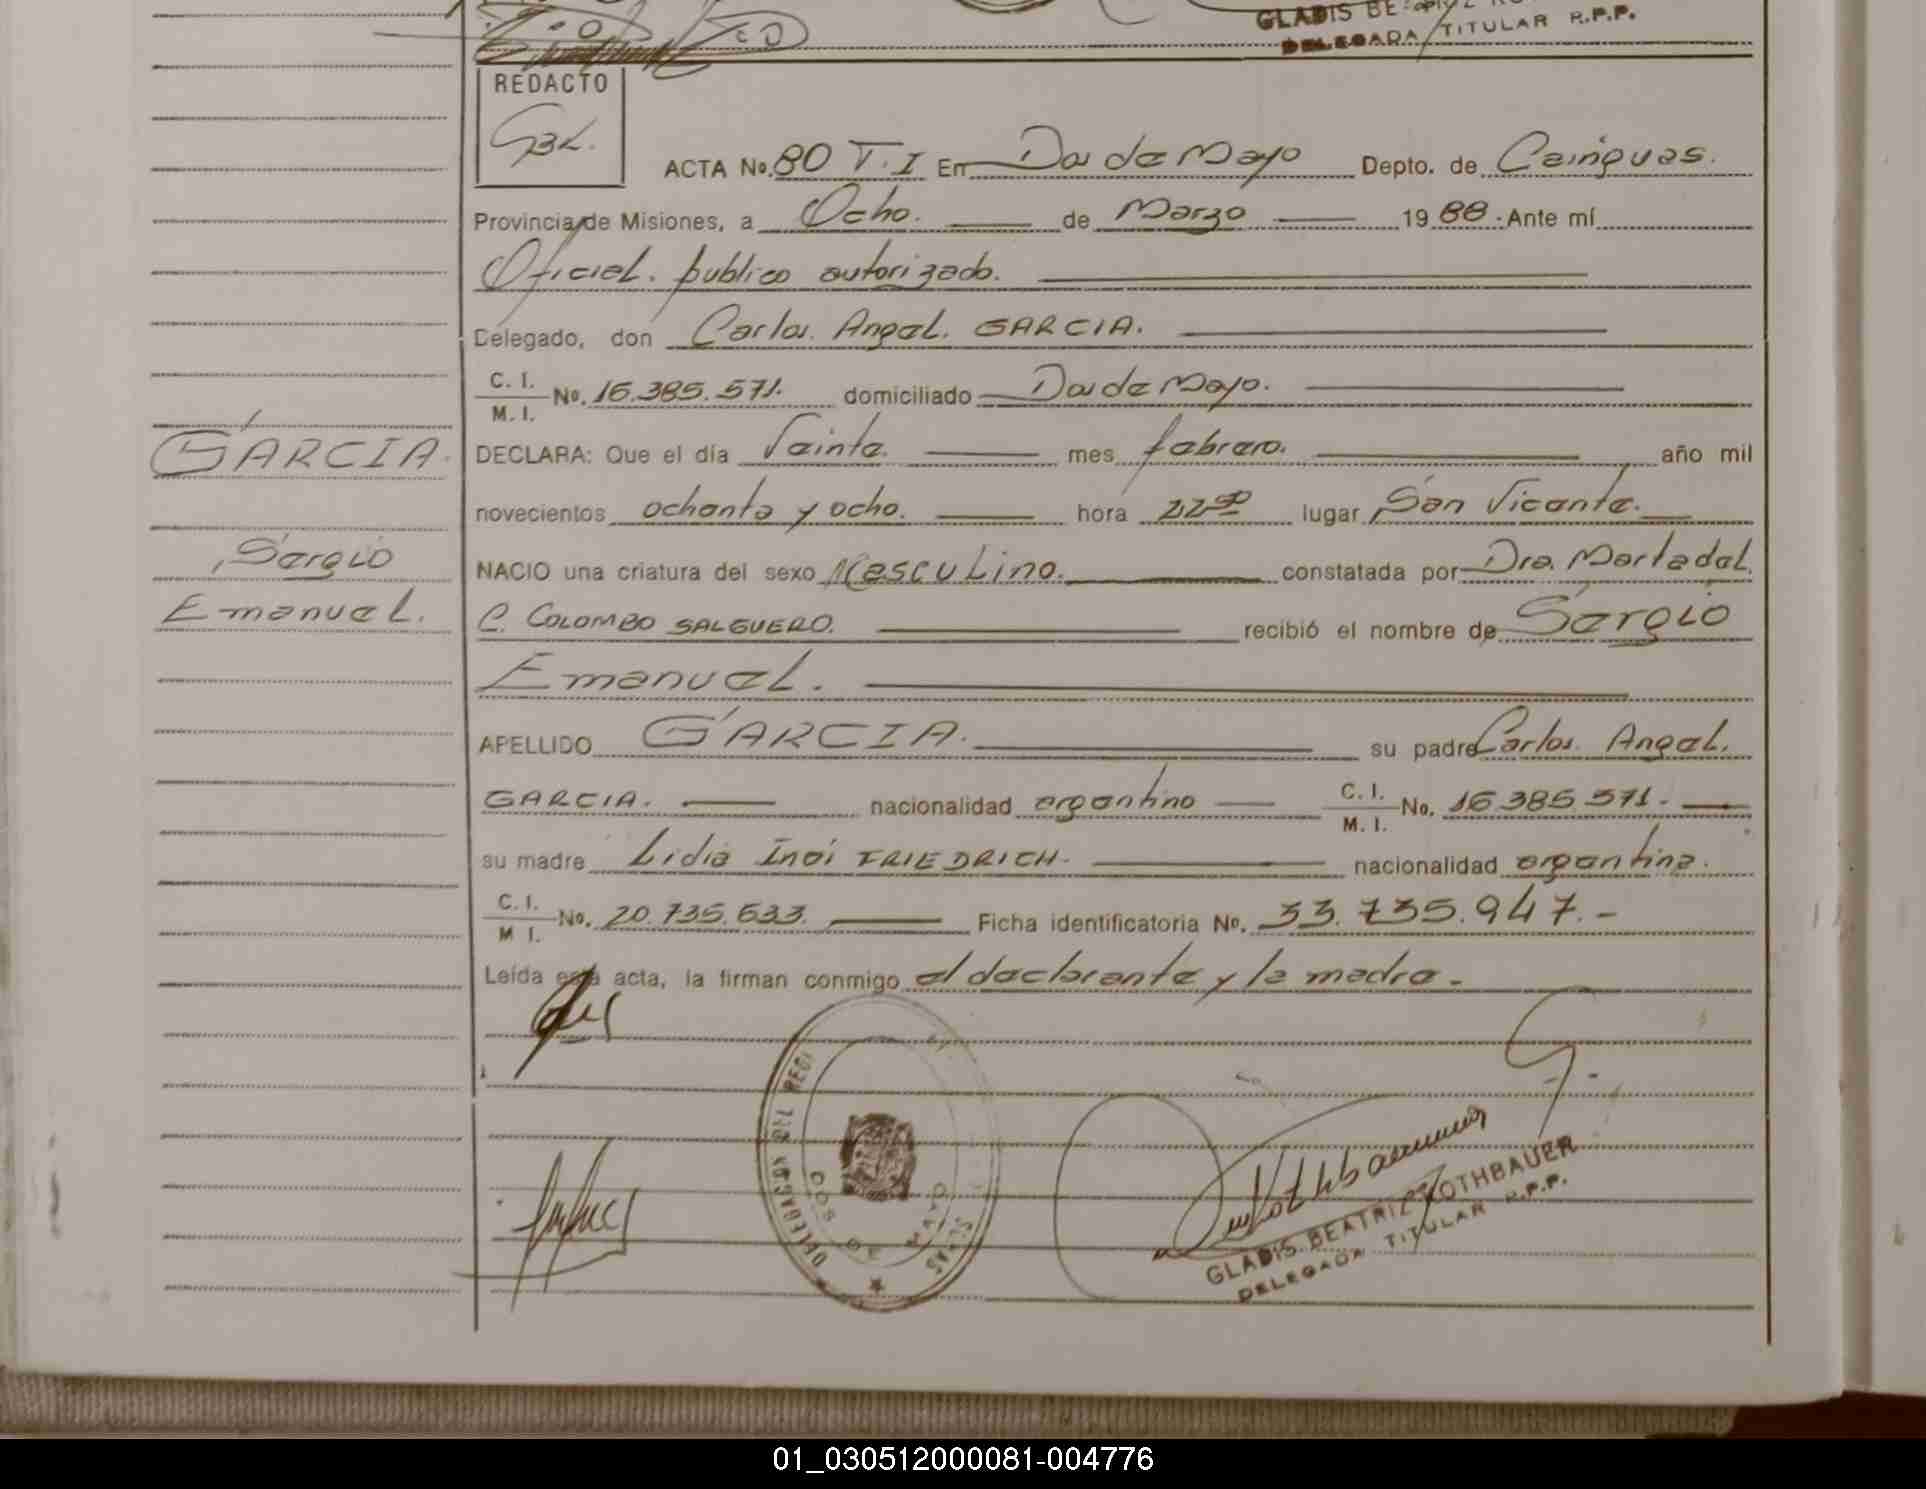 GLADIS BE
DELEGADA TITULAR R.P.P.
REDACTO
GBL.
ACTA No. 80 T.I En Dos de Mayo Depto. de Cainguas.
Provincia de Misiones, a Ocho. de Marzo 19 88. Ante mí
Oficial. publico autorizado.
Delegado, don Carlos. Angel. GARCIA.
C. I.
M. I. No. 16.385.571. domiciliado Dos de Mayo.
GARCIA. DECLARA: Que el día Veinte. mes febrero. año mil
novecientos ochenta y ocho. hora 22⁰⁰ lugar San Vicente.
Sergio NACIO una criatura del sexo Masculino. constatada por Dra. Marta del.
Emanuel. C. COLOMBO SALGUERO. recibió el nombre de Sergio
Emanuel.
APELLIDO GARCIA. su padre Carlos. Angel.
GARCIA. nacionalidad argentino C. I. M. I. No. 16.385.571.
su madre Lidia Inoi FRIEDRICH- nacionalidad argentina.
C. I. M I. No. 20.735.633. Ficha identificatoria No. 33.735.947.-
Leída esta acta, la firman conmigo el declarante y la madre-
DELEGACION DEL REGI
DOS DE MAYO
Rothbauer
GLADIS BEATRIZ ROTHBAUER
DELEGADA TITULAR R.P.P.
01_030512000081-004776